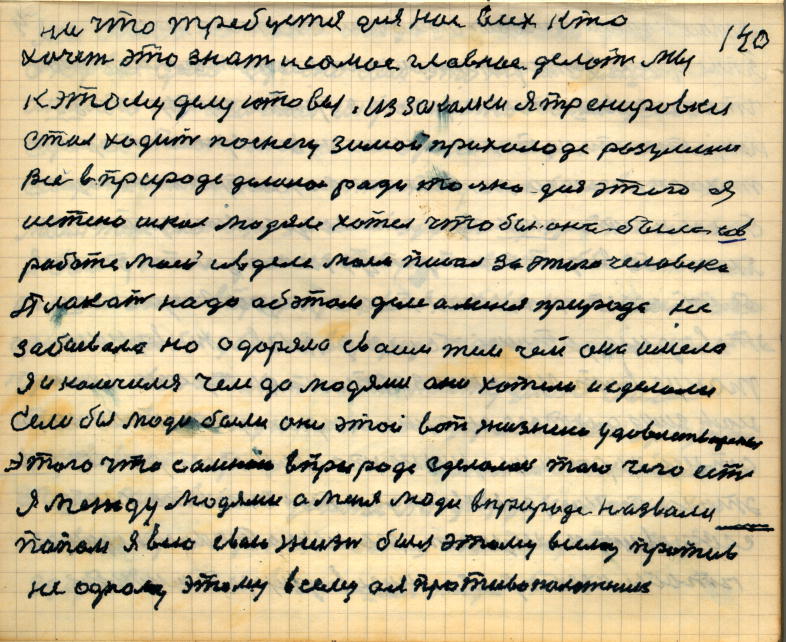 на что требуется для нас всех кто
140
хочет это знат и самое главное делоть мы
к этому делу готовы. из закалки я тренировки
стал ходит по снегу зимой при холоде разумеши
все в природе делаеш ради того для этого я
истено искал людям хотел чтобы она была сов
работе моей и в деле моем писал за этого человека
Плакат надо об этом деле а меня природа не
забывала но одоряла своим тем чем она имела
я и колечимя чем до людями они хотели и сделали
Если бы люди были они этой вот жизнею удовлетворены
этого что самною в природе зделалос того чего ест
Я между людями а меня люди в природе назвали
папом я всю свою жизн был этому всему против
не одному этому всему а я противоположник